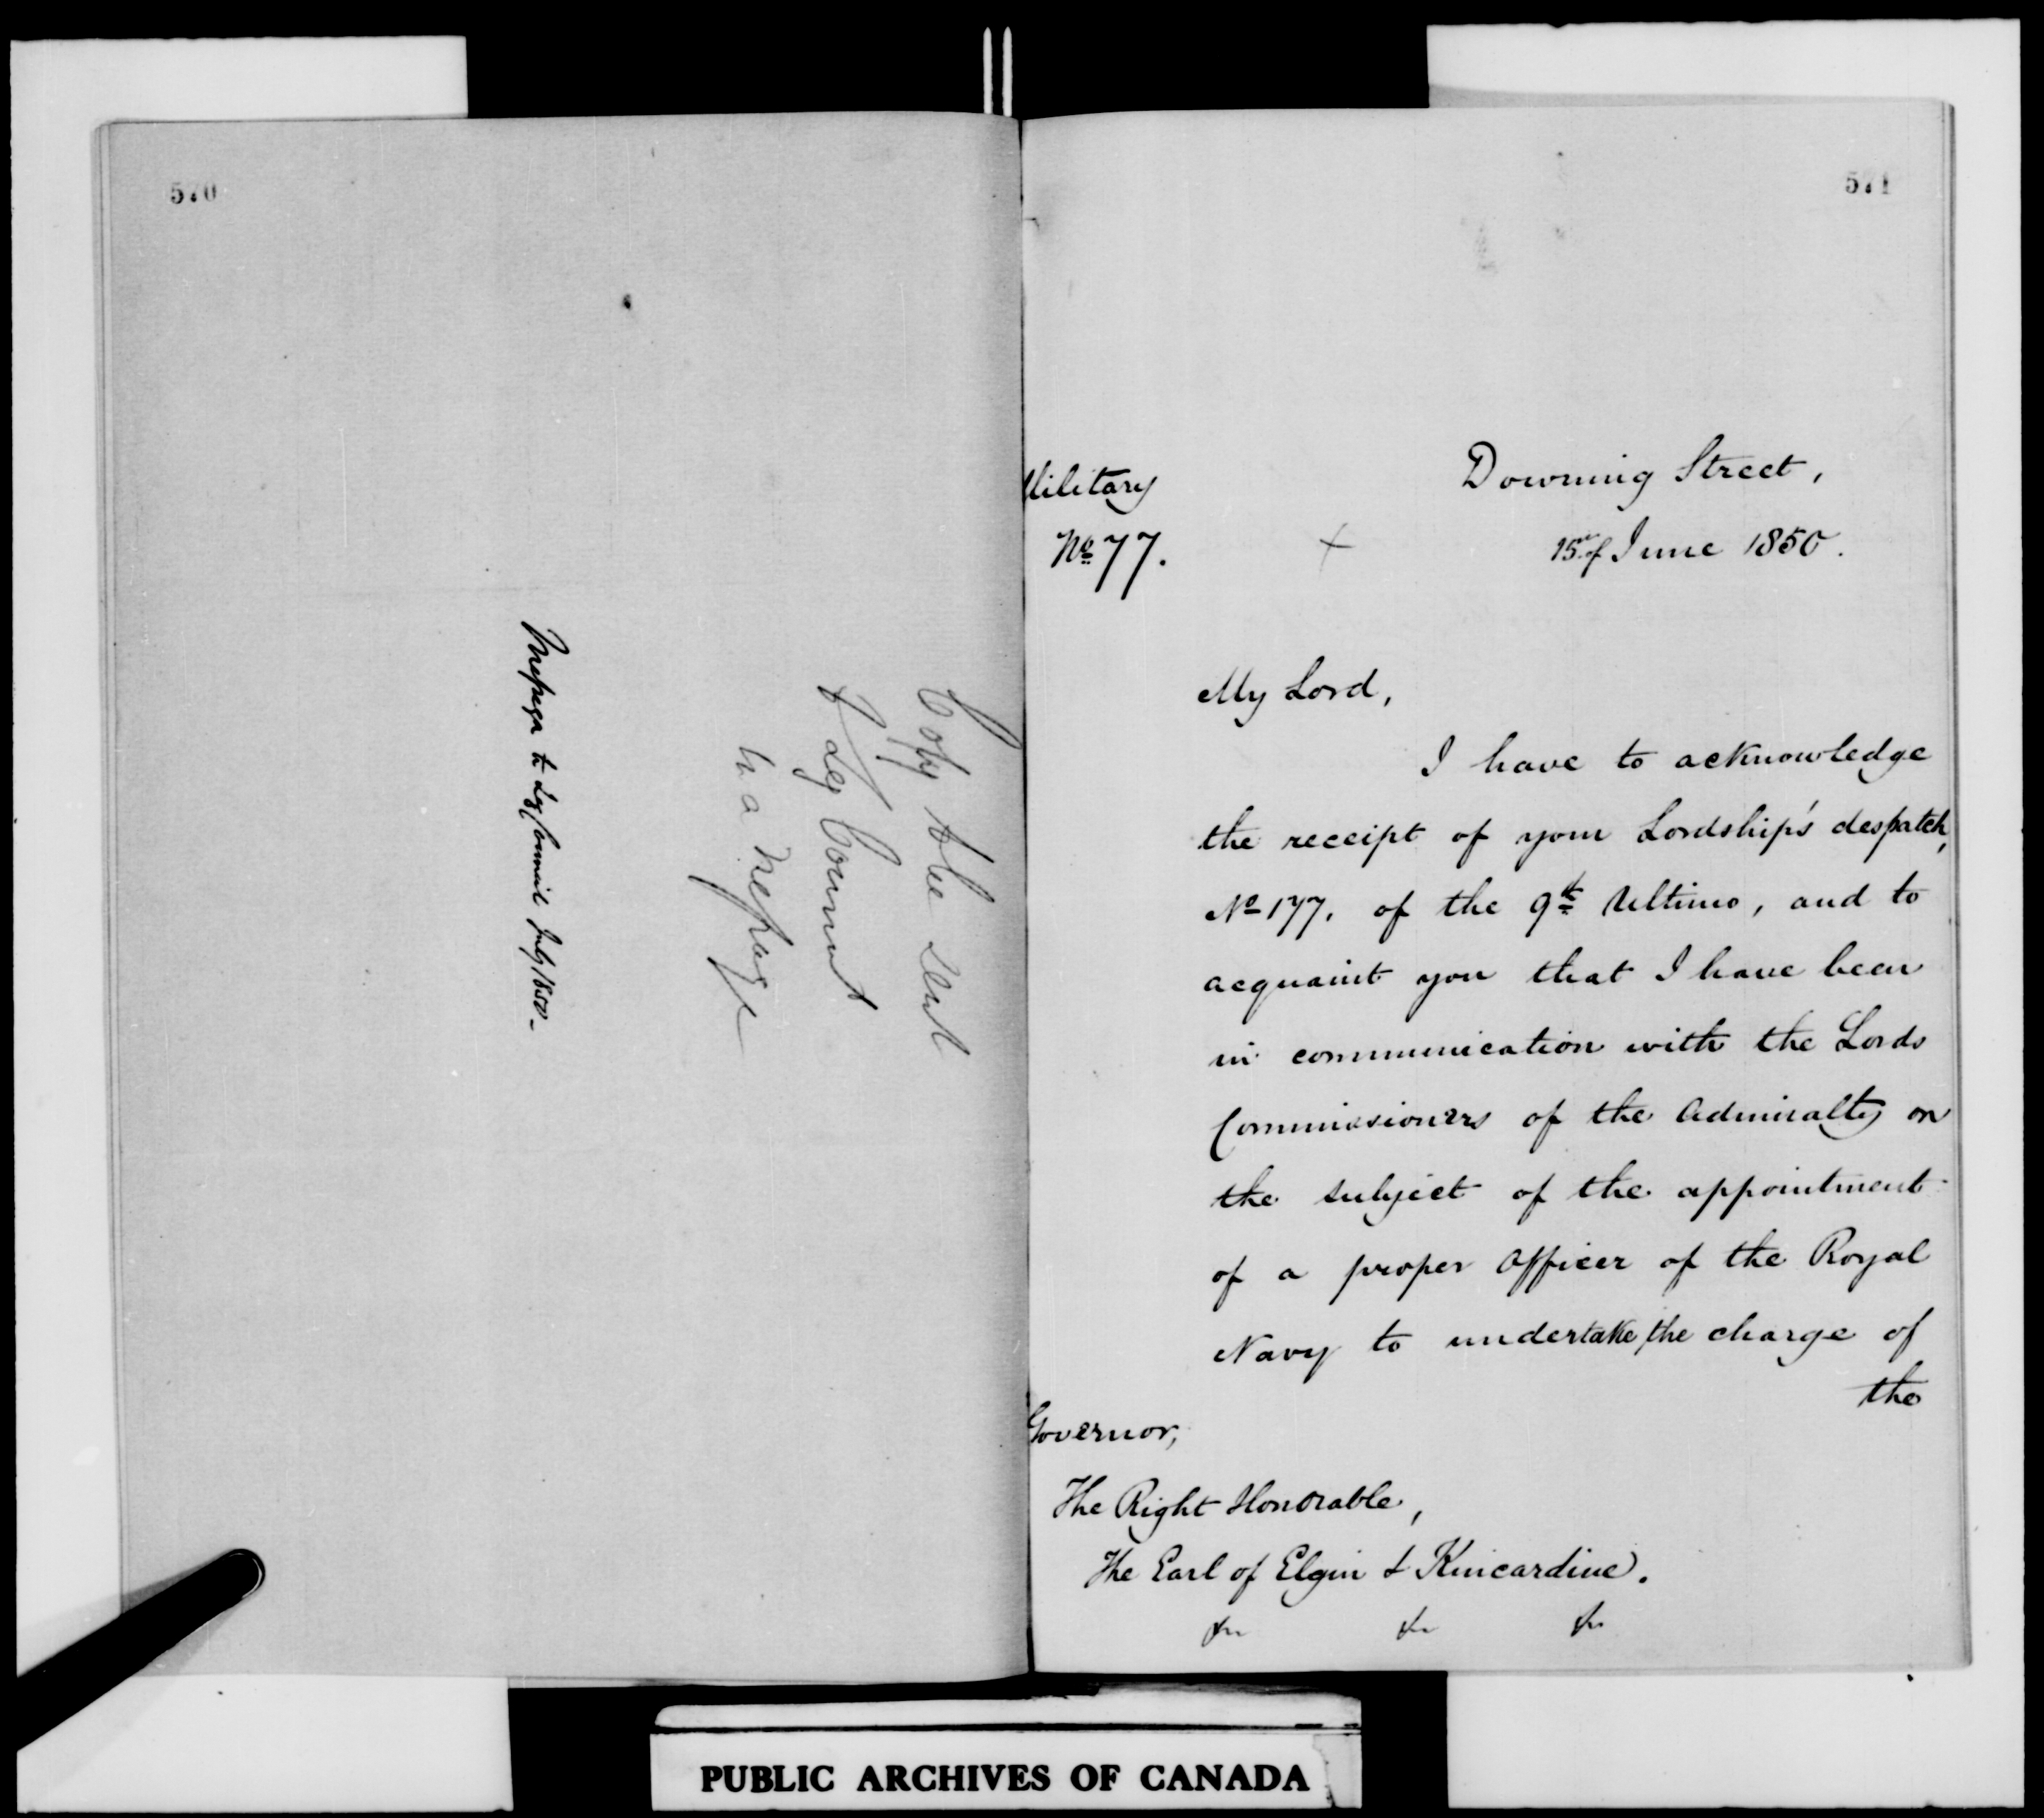 570
Message to Leg Council July/1850_
Copy to be sent
to Leg Council
in a message
571
Military
No 77.
Downing Street,
15th of June 1850.
My Lord,
I have to acknowledge
the receipt of your Lordship's despatch,
No 177, of the 9th Ultimo, and to
acquaint you that I have been
in communication with the Lords
Commissioners of the Admiralty on
the subject of the appointment
of a proper Officer of the Royal
Navy to undertake the charge of
the
Governor,
The Right Honorable,
The Earl of Elgin & Kincardine.
&c &c &c
PUBLIC ARCHIVES OF CANADA